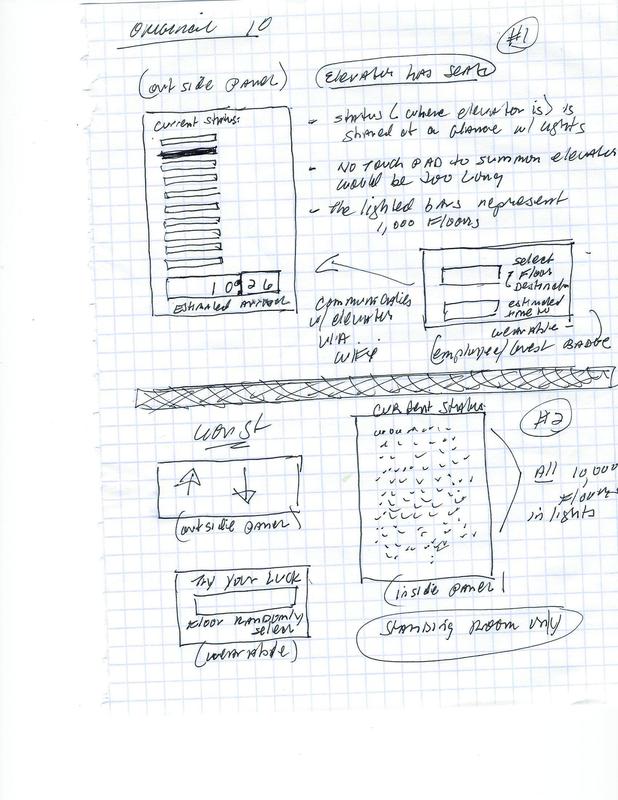 ORIGINAL 10
#1
(outside PANEL)
ELEVATOR HAS SEATS
Current Status:
- Status (where elevator is) is
shared at a glance w/ lights
- NO TOUCH PAD to summon elevator
would be too long
- the lighted bars represent
1,000 Floors
10:26
Estimated Arrival
Communicates
w/ elevator
VIA
WiFi
select
Floor
Destination
estimated
time to
wearable -
(employee/Guest BADGE
worst
(outside PANEL)
Try Your Luck
Floor RANDOMLY
select
(wearable)
CURRENT STATUS
#2
All 10,000
Floors
in lights
(inside PANEL)
STANDING ROOM ONLY